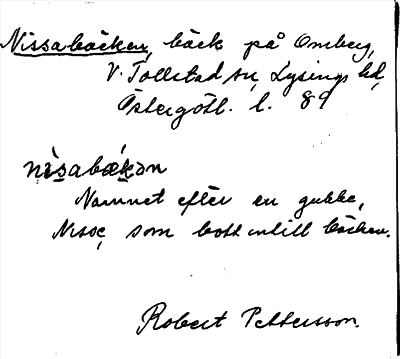 Nissabäcken, bäck på Omberg,
V. Tollstad sn, Lysings hd,
Östergötl. l. 89
nìsabækən
Namnet efter en gubbe,
Nisse, som bott intill bäcken.
Robert Pettersson.